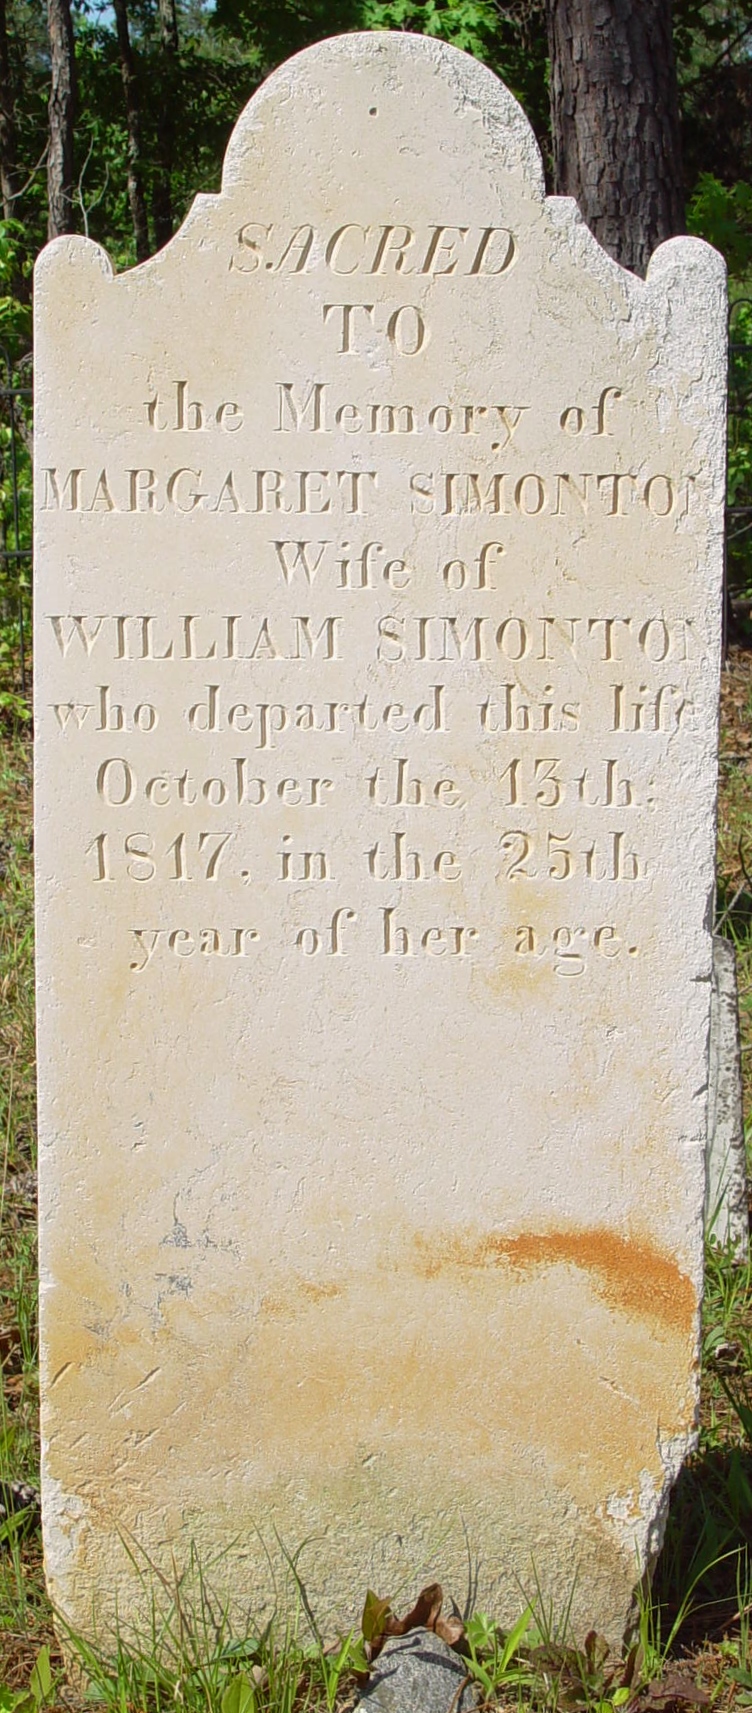 SACRED
TO
the Memory of
MARGARET SIMONTON
Wife of
WILLIAM SIMONTON
who departed this life
October the 13th;
1817, in the 25th
year of her age.